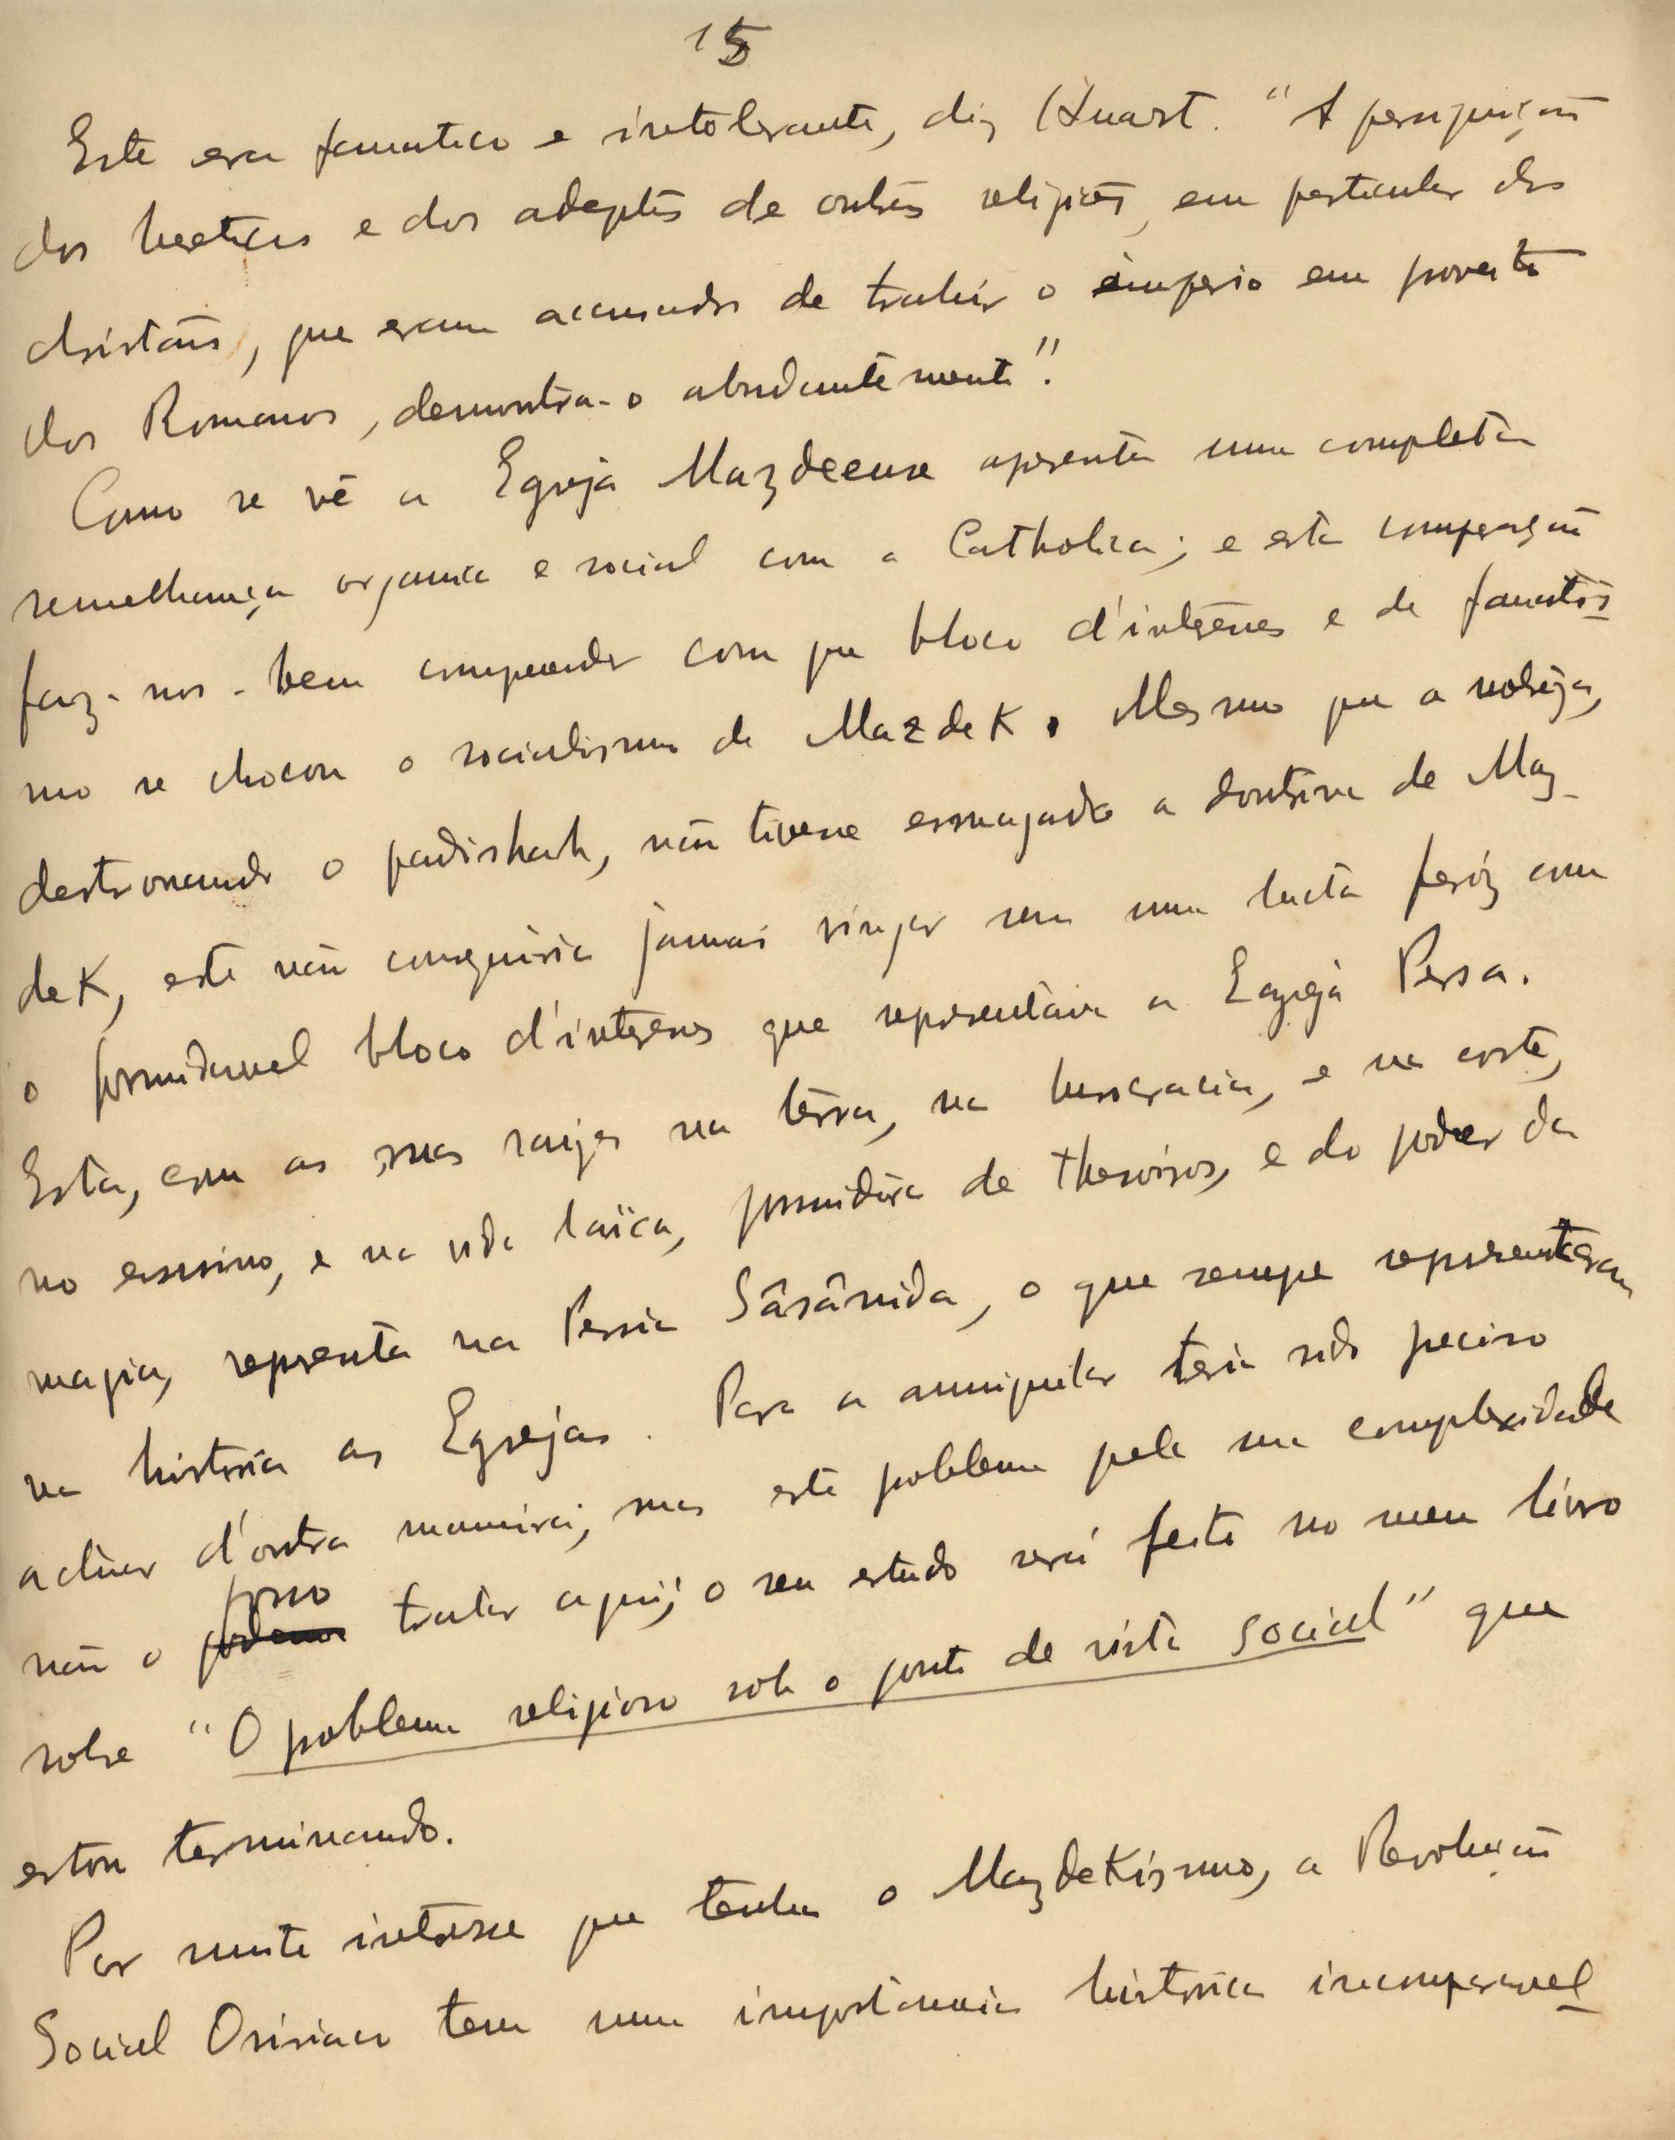 15
Este era fanatico e intolerante, diz Huart. "A perseguição
dos hereticos e dos adeptos de outras religiões, em particular dos
christãos, que eram accusados de trahir o imperio em proveito
dos Romanos, demonstra-o abundantemente".
Como se vê a Egreja Mazdeense apresenta uma completa
semelhança organica e social com a Catholica; e esta comparação
faz-nos-bem comprehender com que bloco d'interesses e de fanatis
mo se chocou o socialismo de MazdeK. Mesmo que a nobreza,
destronando o padishah, não tivesse esmagado a doutrina de Maz-
deK, este não conseguiria jamais vingar sem uma lucta feróz com
o formidavel bloco d'interesses que representava a Egreja Persa.
Esta, com as suas raizes na terra, na burocracia, e na corte,
no ensino, e na vida laïca, possuidora de thesoiros, e do poder da
magia, representa na Persia Sâsânida, o que sempre representaram
na historia as Egrejas. Para a anniquilar teria sido preciso
actuar d'outra maneira; mas este problema pela sua complexidade
posso
não o podemos tratar aqui; o seu estudo será feito no meu livro
sobre "O problema religioso sob o ponto de vista social" que
estou terminando.
Por muito interesse que tenha o MazdeKismo, a Revolução
Social Osiriaca tem uma importancia historica incomparavel